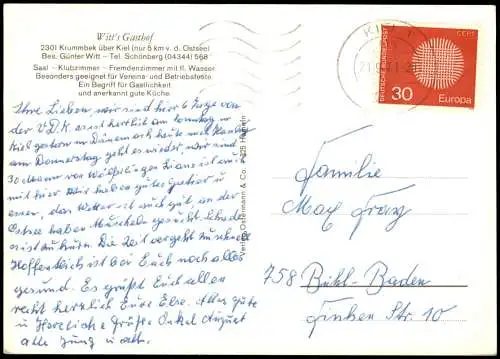 Witt's Gasthof
2301 Krummbek über Kiel (nur 5 km v. d. Ostsee)
Bes. Günter Witt – Tel. Schönberg (04344) 568
Saal – Klubzimmer – Fremdenzimmer mit fl. Wasser
Besonders geeignet für Vereins- und Betriebsfeste
Ein Begriff für Gastlichkeit
und anerkannt gute Küche.
Ihre Lieben, wir sind hier 6 Tage von
der V.D.K. es ist herrlich am Sonntag in
Kiel gestern in Dänemark heute nach
am Donnerstag geht es wieder, wir sind
30 Mann von
mit hier Wir haben gutes Quartier u
essen, das Wetter ist auch gut, an der
Ostsee haben Muscheln gesucht.
es ist zu kurz. Die Zeit vergeht zu schnell
Hoffentlich ist bei Euch noch alles
gesund. Es grüßt Euch allen
recht herzlich Eure Else. Alles gute
u Herzliche Grüße Onkel August
alle Jung u alt.
Verlag Ostermann & Co. 325 Hameln
KIEL 1
DEUTSCHE BUNDESPOST
CEPT
30
Europa
Familie
Max Franz
758 Bühl-Baden
Finken Str. 10